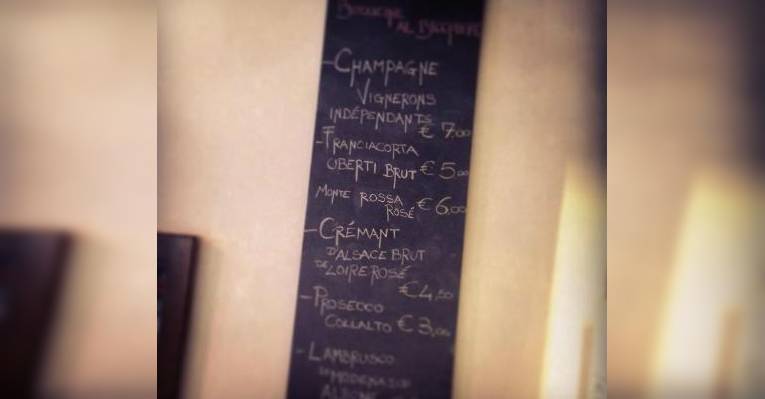 BOLLICINE
AL BICCHIERE
- CHAMPAGNE
VIGNERONS
INDÉPENDANTS
€ 7,00
- FRANCIACORTA
UBERTI BRUT € 5,00
MONTE ROSSA
ROSÉ € 6,00
- CRÉMANT
D'ALSACE BRUT
DE LOIRE ROSÉ
€ 4,50
- PROSECCO
COLLALTO € 3,00
- LAMBRUSCO
DI MODENA